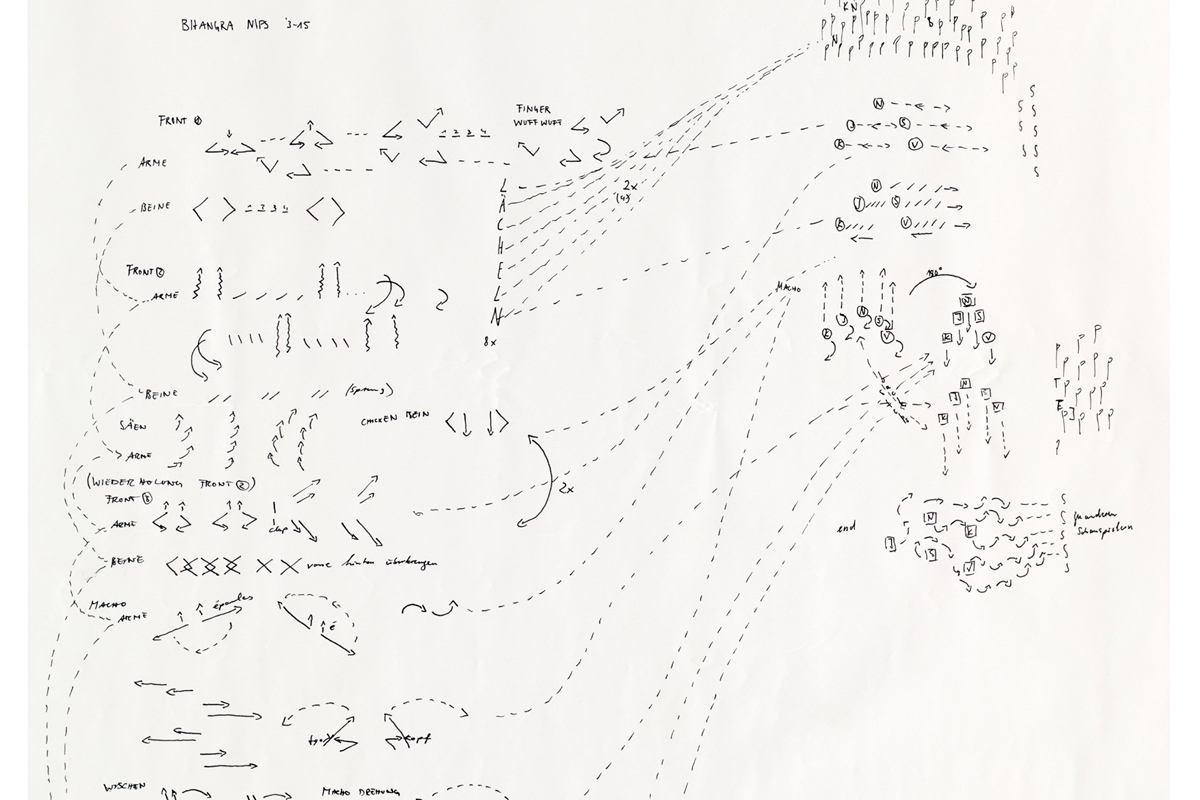 BHANGRA NIPS 3-15
FRONT ①
FINGER
WUFF WUFF
1 2 3 4
ARME
BEINE
1 2 3 4
LÄCHELN
8x
2x
(4)
FRONT ②
ARME
BEINE
(Sprung)
SÄEN
ARME
CHICKEN BEIN
2x
(WIEDERHOLUNG FRONT ②)
FRONT ③
ARME
clap
BEINE
vorne hinten überkreuzen
MACHO
ARME
épaules
é
kopf
WISCHEN
MACHO DREHUNG
KN
B
N
N
J S
K V
N
J S
K V
MACHO
180°
N
J S
K V
N
J S
K V
N
J S
K V
T
E
end
N
J K
S V
Schauspielern